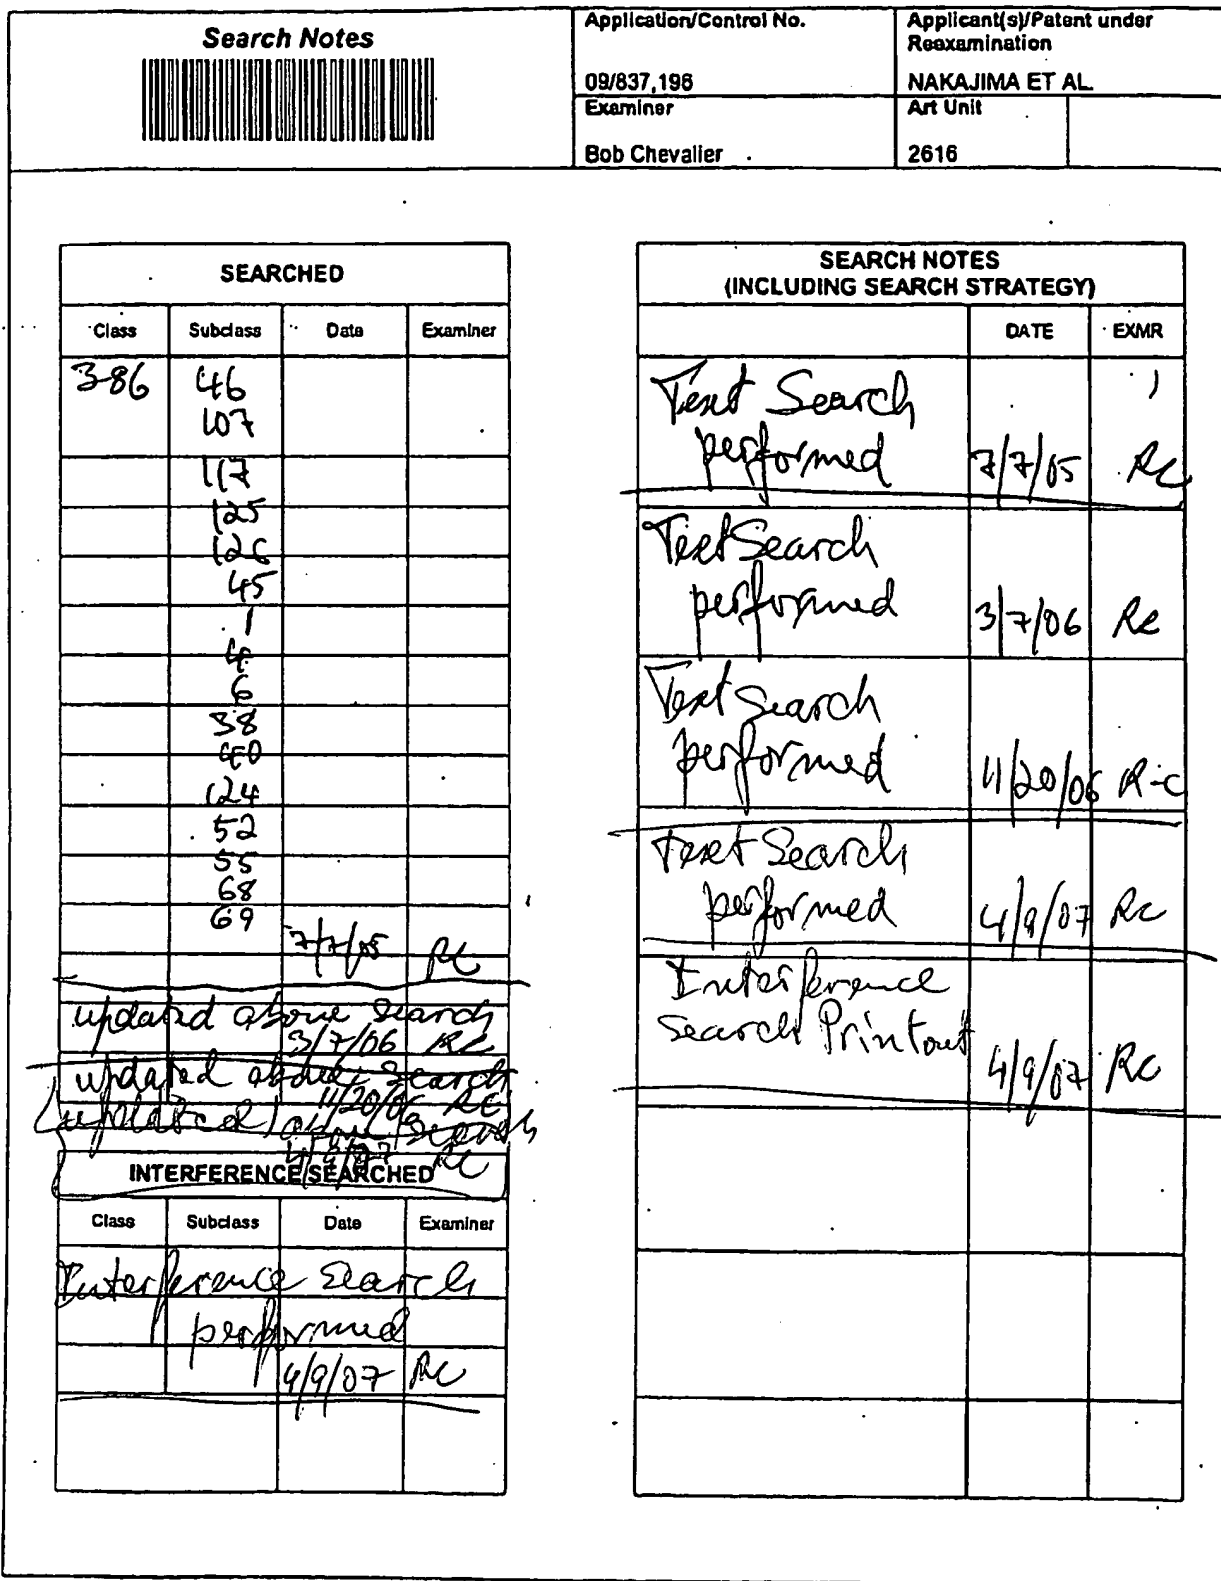 Search Notes
Application/Control No.
09/837,196
Applicant(s)/Patent under
Reexamination
NAKAJIMA ET AL.
Examiner
Bob Chevalier
Art Unit
2616
SEARCHED
Class Subclass Date Examiner
386 46
107
117
125
126
45
1
4
6
38
40
124
52
55
68
69
7/7/05 RC
updated above search
3/7/06 RC
updated above search
11/20/06 RC
updated above search
4/9/07 RC
INTERFERENCE SEARCHED
Class Subclass Date Examiner
Interference search
performed
4/9/07 RC
SEARCH NOTES
(INCLUDING SEARCH STRATEGY)
DATE EXMR
Text Search
performed 7/7/05 RC
Text Search
performed 3/7/06 RC
Text Search
performed 11/20/06 R-C
Text Search
performed 4/9/07 RC
Interference
search Printout
4/9/07 RC